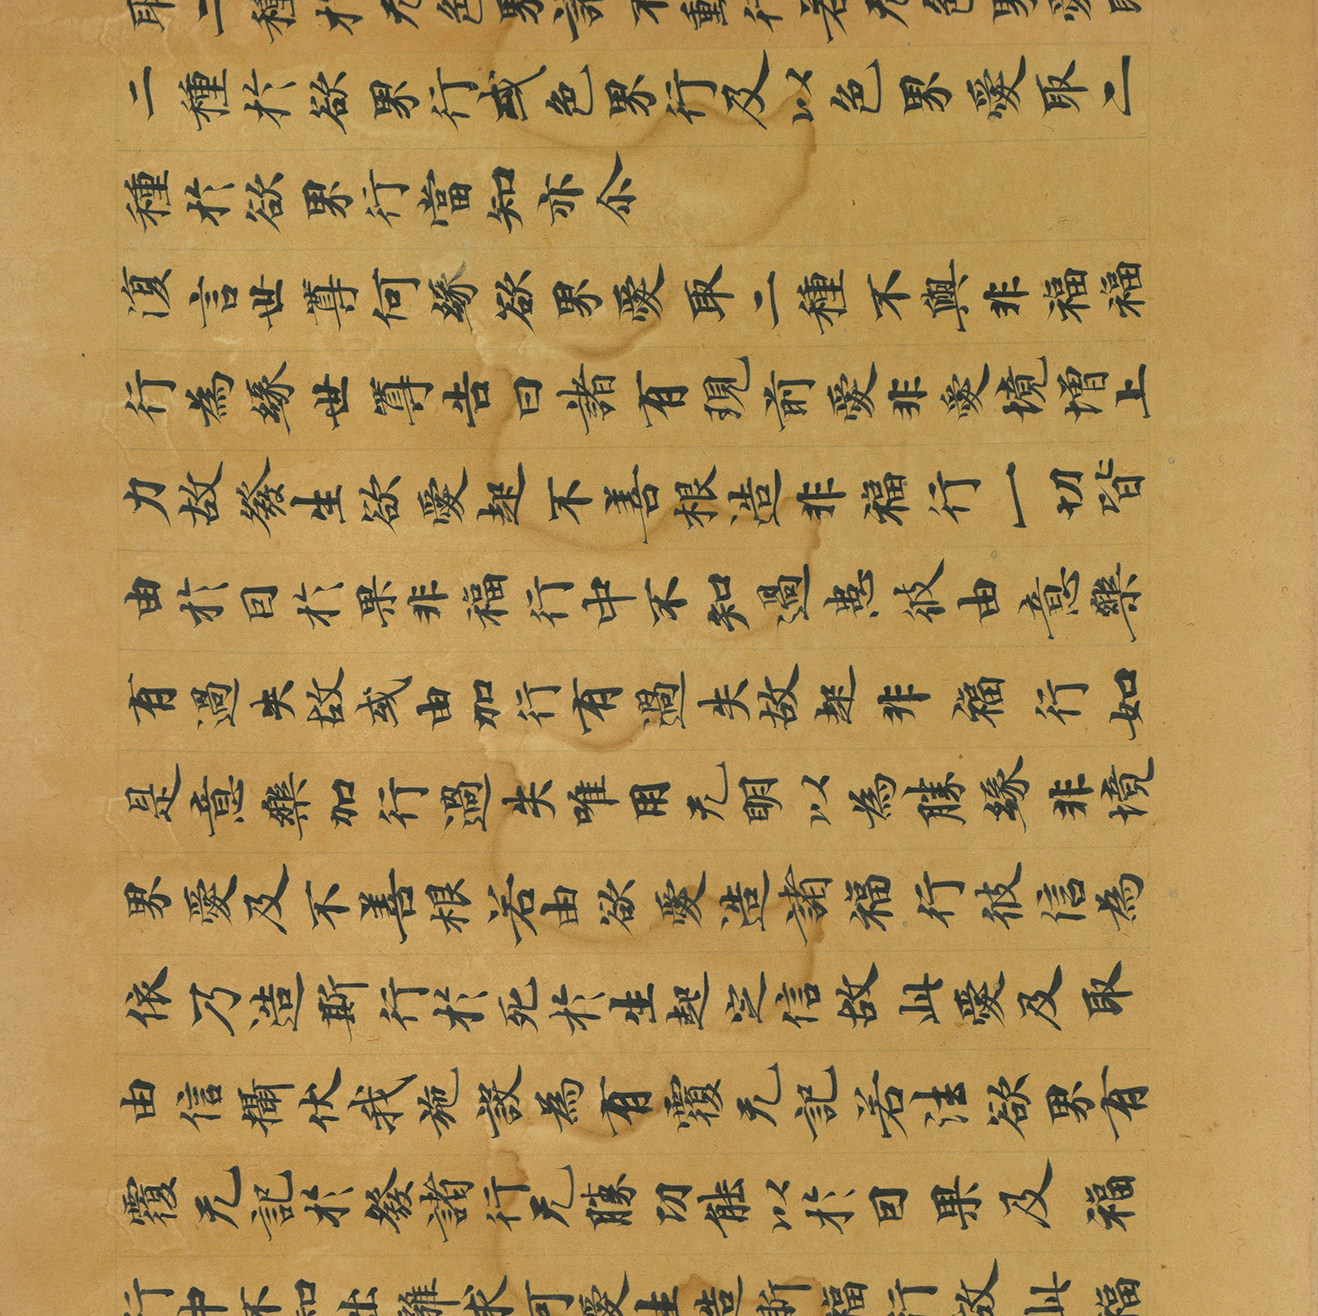 取二種於无色界諸不動行若无色界愛取
二種於欲界行或色界行及以色界愛取二
種於欲界行當知亦尒
復言世尊何緣欲界愛取二種不與非福福
行為緣世尊告曰諸有現前愛非愛境增上
力故發生欲愛起不善根造非福行一切皆
由於因於果非福行中不知過患彼由意樂
有過失故或由加行有過失故起非福行如
是意樂加行過失唯用无明以為勝緣非境
界愛及不善根若由欲愛造諸福行彼信為
依乃造斯行於死於生起定信故此愛及取
由信攝伏我施設為有覆无記若法欲界有
覆无記於發諸行无勝功能以於因果及福
行中不知出離求可愛生造斯福行故此福